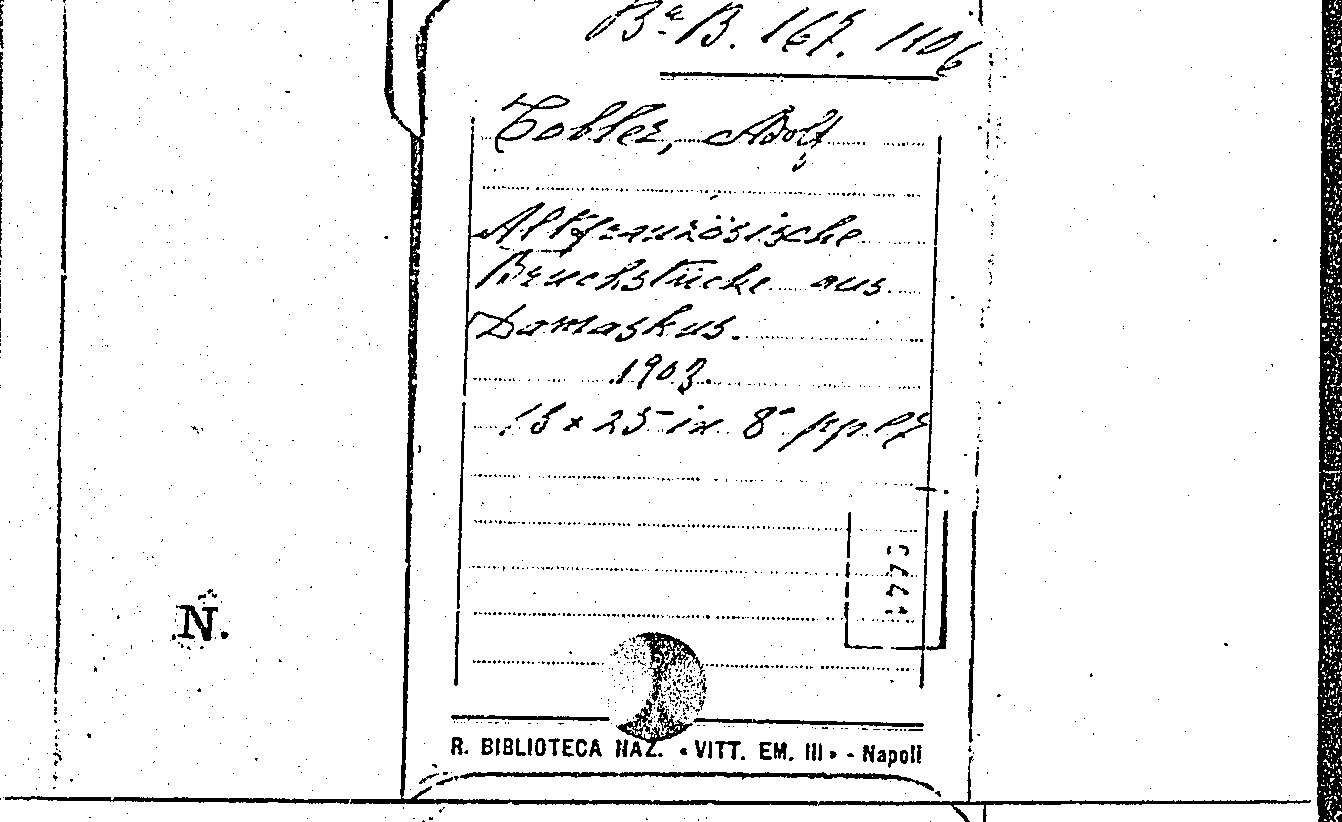 Bª B. 167. 1106
Tobler, Adolf
Altfranzösische
Bruchstücke aus
Damaskus.
1903.
15 x 25 in 8°
N.
R. BIBLIOTECA NAZ. « VITT. EM. III » - Napoli